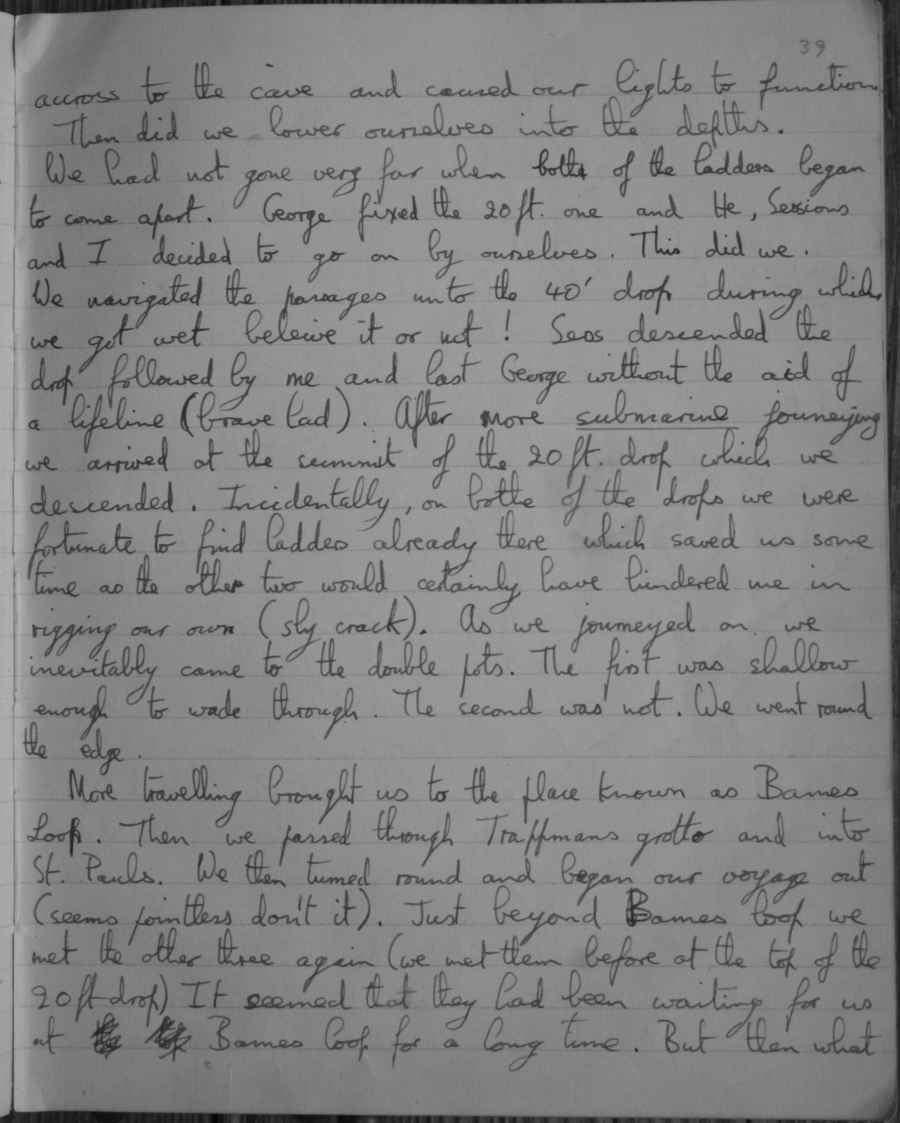 39
accross to the cave and caused our lights to function
Then did we lower ourselves into the depths.
We had not gone very far when both of the ladders began
to come apart. George fixed the 20 ft. one and He, Sessions
and I decided to go on by ourselves. This did we.
We navigated the passages unto the 40' drop during which
we got wet beleive it or not! Sess descended the
drop followed by me and last George without the aid of
a lifeline (brave lad). After more submarine journeying
we arrived at the summit of the 20 ft. drop which we
descended. Incidentally, on bothe of the drops we were
fortunate to find ladders already there which saved us some
time as the other two would certainly have hindered me in
rigging our own (sly crack). As we journeyed on we
inevitably came to the double pots. The first was shallow
enough to wade through. The second was not. We went round
the edge.
More travelling brought us to the place known as Barnes
Loop. Then we passed through Trappmans grotto and into
St. Pauls. We then turned round and began our voyage out
(seems pointless don't it). Just beyond Barnes loop we
met the other three again (we met them before at the top of the
20 ft drop) It seemed that they had been waiting for us
at Barnes loop for a long time. But then what